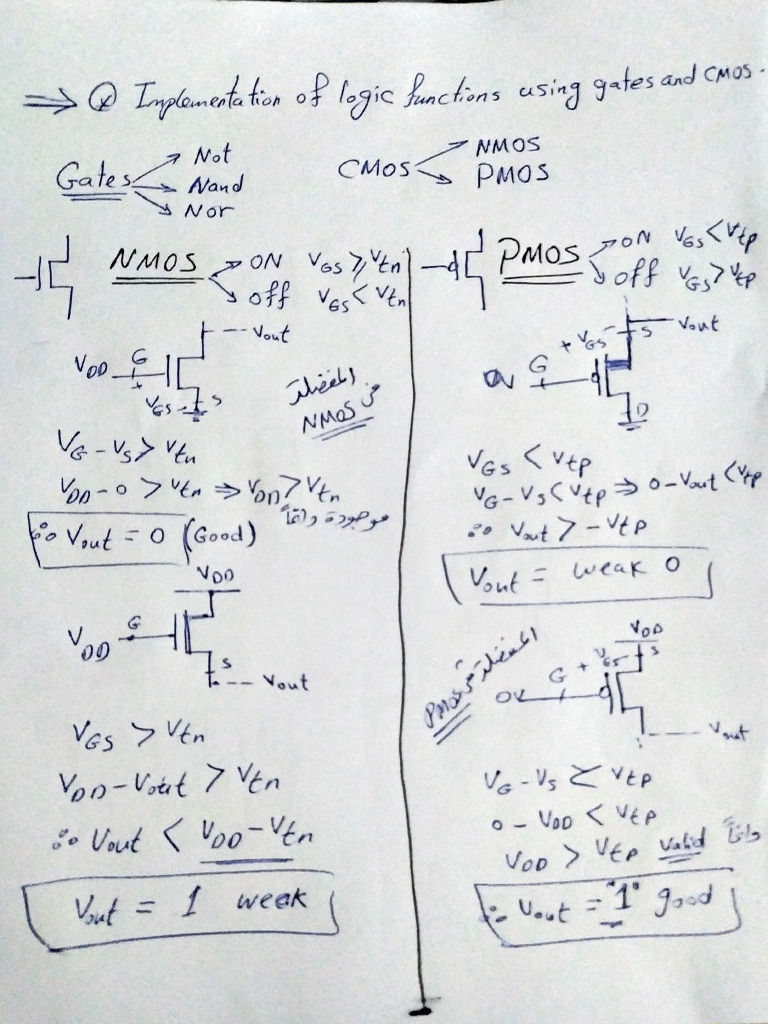 ⇒ Q Implementation of logic functions using gates and CMOS.
Gates → Not
→ Nand
→ Nor
CMOS → NMOS
→ PMOS
NMOS → ON VGS ≥ Vtn
→ off VGS < Vtn
VDD G Vout
+ VGS - S
المفضلة في
NMOS
VG - VS > Vtn
VDD - 0 > Vtn ⇒ VDD > Vtn
موجودة دائماً
∴ Vout = 0 (Good)
VDD
VDD G
S
Vout
VGS > Vtn
VDD - Vout > Vtn
∴ Vout < VDD - Vtn
Vout = 1 weak
PMOS → ON VGS < Vtp
→ off VGS > Vtp
+ VGS - S Vout
0V G
D
VGS < Vtp
VG - VS < Vtp ⇒ 0 - Vout < Vtp
∴ Vout > -Vtp
Vout = weak 0
المفضلة في PMOS
VDD
G + VGS - S
0V
Vout
VG - VS < Vtp
0 - VDD < Vtp
VDD > Vtp Valid دائماً
∴ Vout = "1" good